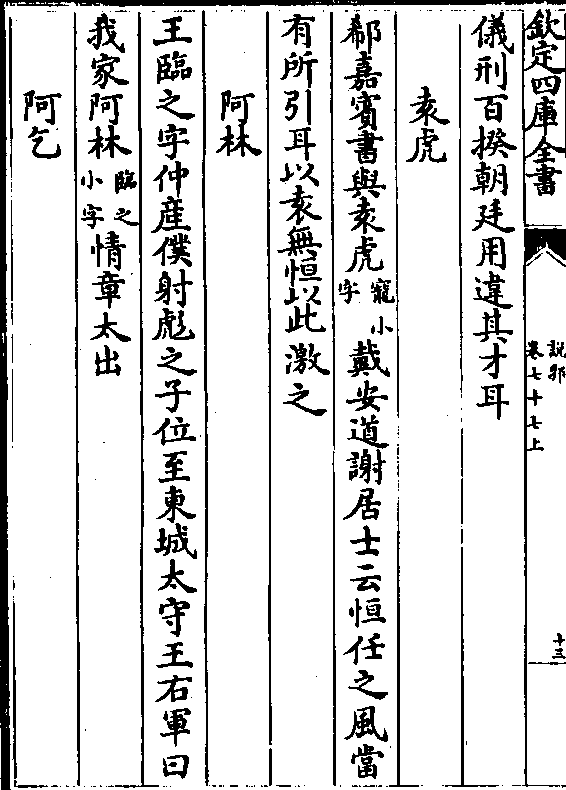 欽定四庫全書
說郛
卷七十七上
十三
儀刑百揆朝廷用違其才耳
袁虎
郗嘉賓書與袁虎寵小字戴安道謝居士云恒任之風當
有所引耳以袁無恒以此激之
阿林
王臨之字仲產僕射彪之子位至東城太守王右軍曰
我家阿林臨之小字情章太出
阿乞